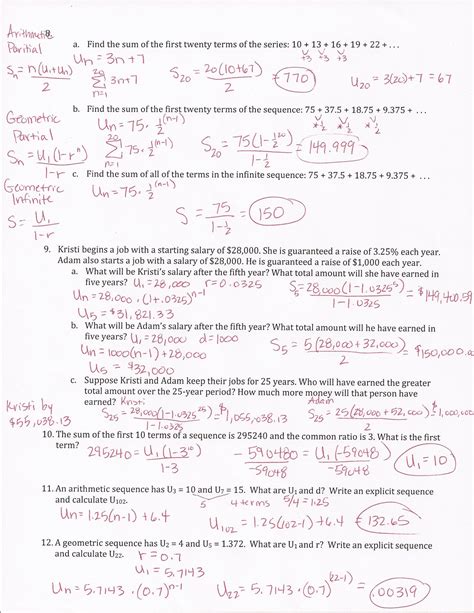 Arithmetic 8.
Paritial
a. Find the sum of the first twenty terms of the series: 10 + 13 + 16 + 19 + 22 + . . .
+3 +3 +3
Un = 3n+7
Sn = n(U1+Un)/2
20 Σ n=1 3n+7
S20 = 20(10+67)/2 = 770
U20 = 3(20)+7 = 67
Geometric
Partial
b. Find the sum of the first twenty terms of the sequence: 75 + 37.5 + 18.75 + 9.375 + . . .
Un = 75 · 1/2^(n-1)
Sn = U1(1-r^n)/1-r
20 Σ n=1 75 · 1/2^(n-1)
S20 = 75(1-1/2^20)/1-1/2 = 149.999
Geometric
Infinite
c. Find the sum of all of the terms in the infinite sequence: 75 + 37.5 + 18.75 + 9.375 + . . .
Un = 75 · 1/2^(n-1)
S = U1/1-r
S = 75/1-1/2 = 150
9. Kristi begins a job with a starting salary of $28,000. She is guaranteed a raise of 3.25% each year.
Adam also starts a job with a salary of $28,000. He is guaranteed a raise of $1,000 each year.
a. What will be Kristi's salary after the fifth year? What total amount will she have earned in
five years? U1 = 28,000 r=0.0325
S5 = 28,000(1-1.0325^5)/1-1.0325 = $149,400.59
Un = 28,000 · (1+.0325)^n-1
U5 = $31,821.33
b. What will be Adam's salary after the fifth year? What total amount will he have earned in
five years? U1 = 28,000 d=1000
Un = 1000(n-1)+28,000
S5 = 5(28,000+32,000)/2 = $150,000.00
U5 = $32,000
c. Suppose Kristi and Adam keep their jobs for 25 years. Who will have earned the greater
total amount over the 25-year period? How much more money will that person have
earned? Kristi Adam
Kristi by
$55,038.13
S25 = 28,000(1-1.0325^25)/1-1.0325 = $1,055,038.13
S25 = 25(28,000+52,000)/2 = $1,000,000
10. The sum of the first 10 terms of a sequence is 295240 and the common ratio is 3. What is the first
term?
295240 = U1(1-3^10)/1-3
-590480/-59048 = U1(-59048)/-59048
U1 = 10
11. An arithmetic sequence has U3 = 10 and U7 = 15. What are U1 and d? Write an explicit sequence
and calculate U102.
5
4 terms 5/4 = 1.25
Un = 1.25(n-1)+6.4
U102 = 1.25(102-1)+6.4 = 132.65
12. A geometric sequence has U2 = 4 and U5 = 1.372. What are U1 and r? Write an explicit sequence
and calculate U22. r = 0.7
U1 = 5.7143
Un = 5.7143 · (0.7)^n-1
U22 = 5.7143 · (0.7)^(22-1) = .00319